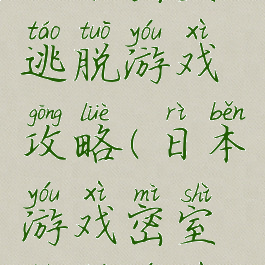 táo tuō yóu xì
逃脱游戏
gōng lüè rì běn
攻略(日本
yóu xì mì shì
游戏密室